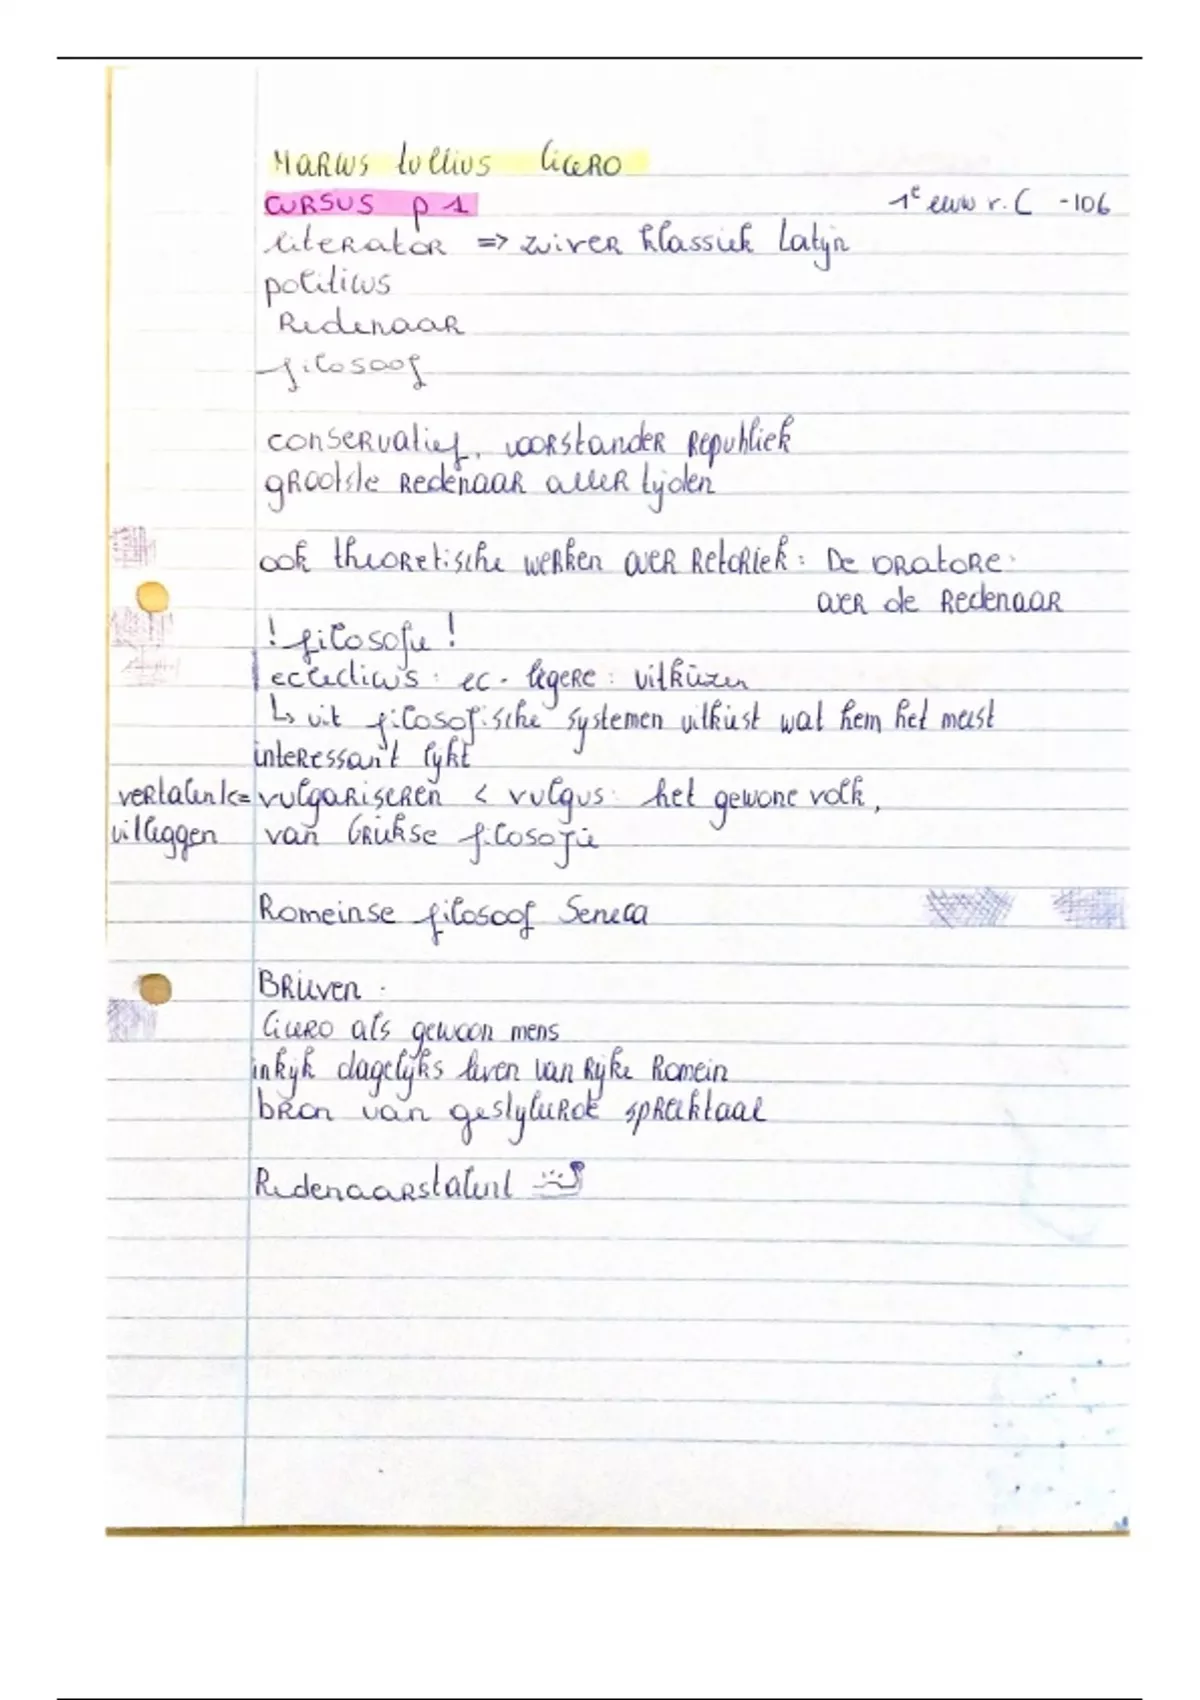 Marcus Tullius Cicero
CURSUS p 1
1e eeuw v. C -106
literator => zuiver klassiek Latijn
politicus
Redenaar
filosoof
conservatief, voorstander Republiek
grootste Redenaar aller tijden
ook theoretische werken over Retoriek: De ORatore:
over de Redenaar
! filosofie !
eclecticus: ec-legere: uitkiezen
↳ uit filosofische systemen uitkiest wat hem het meest
interessant lijkt
vertalen &= vulgariseren < vulgus: het gewone volk,
uitleggen van Griekse filosofie
Romeinse filosoof Seneca
Brieven:
Cicero als gewoon mens
inkijk dagelijks leven van Rijke Romein
bron van gestyleerde spreektaal
Redenaarstalent